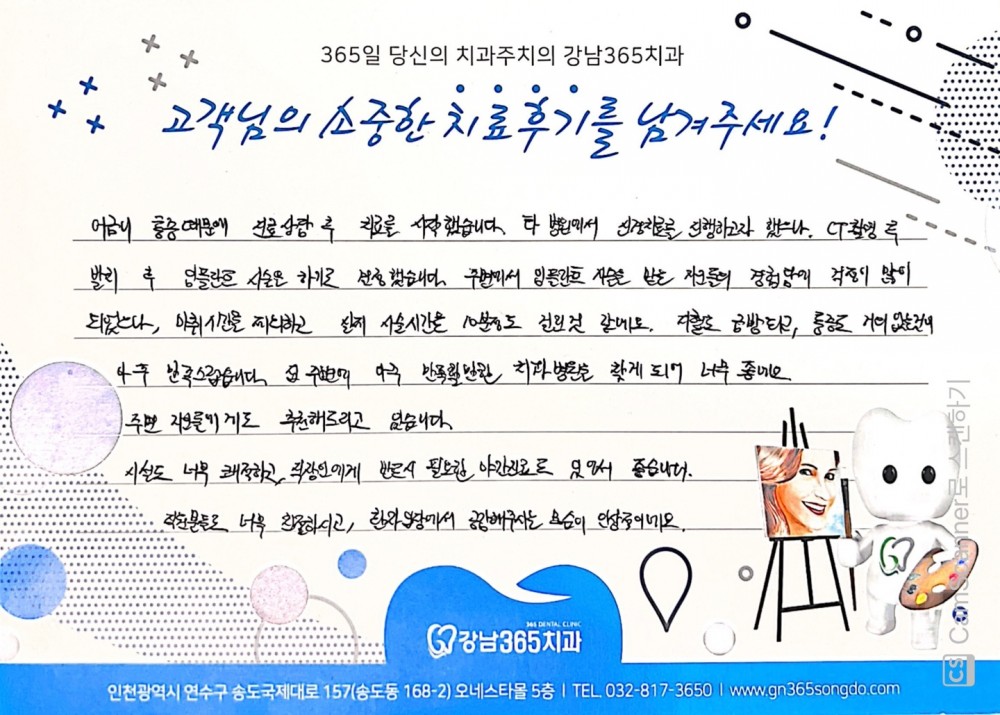 365일 당신의 치과주치의 강남365치과
고객님의 소중한 치료후기를 남겨주세요!
어금니 통증때문에 진료상담 후 치료를 시작했습니다. 타 병원에서 신경치료를 진행하고자 했으나, CT촬영 후
발치 후 임플란트 시술을 하기로 결정했습니다. 주변에서 임플란트 시술을 받은 지인들의 경험담에 걱정이 많이
되었으나, 마취시간을 제외하고 실제 시술시간은 10분정도 걸린것 같네요. 지혈도 금방되고, 통증도 거의 없는편이
아주 만족스럽습니다. 집 주변에 아주 만족할만한 치과병원을 찾게 되어 너무 좋네요
주변 지인들에게도 추천해드리고 있습니다.
시설도 너무 쾌적하고, 직장인에게 반드시 필요한 야간진료도 있어서 좋습니다.
직원분들도 너무 친절하시고, 환자입장에서 공감해주시는 모습이 인상적이네요.
365 DENTAL CLINIC
강남365치과
인천광역시 연수구 송도국제대로 157(송도동 168-2) 오네스타몰 5층 | TEL. 032-817-3650 | www.gn365songdo.com
CS CamScanner로 스캔하기